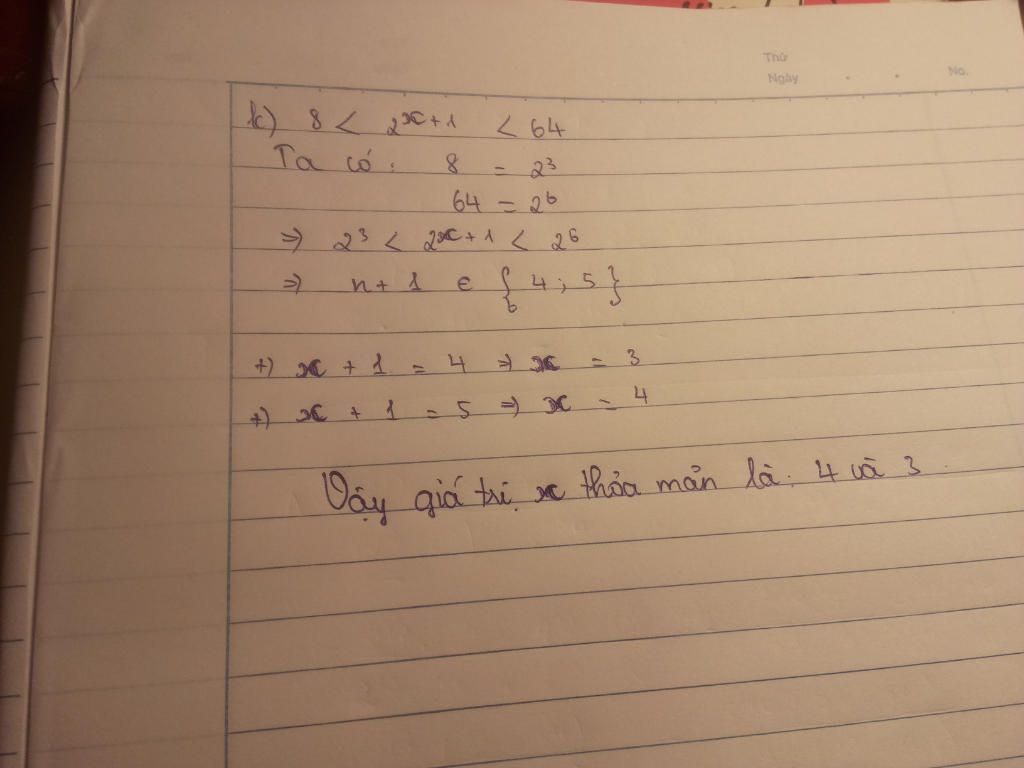 Thứ
Ngày . . No.
k) 8 < 2^{x+1} < 64
Ta có: 8 = 2³
64 = 2⁶
⇒ 2³ < 2^{x+1} < 2⁶
⇒ n + 1 ∈ { 4 ; 5 }
+) x + 1 = 4 ⇒ x = 3
+) x + 1 = 5 ⇒ x = 4
Vậy giá trị x thỏa mãn là: 4 và 3.